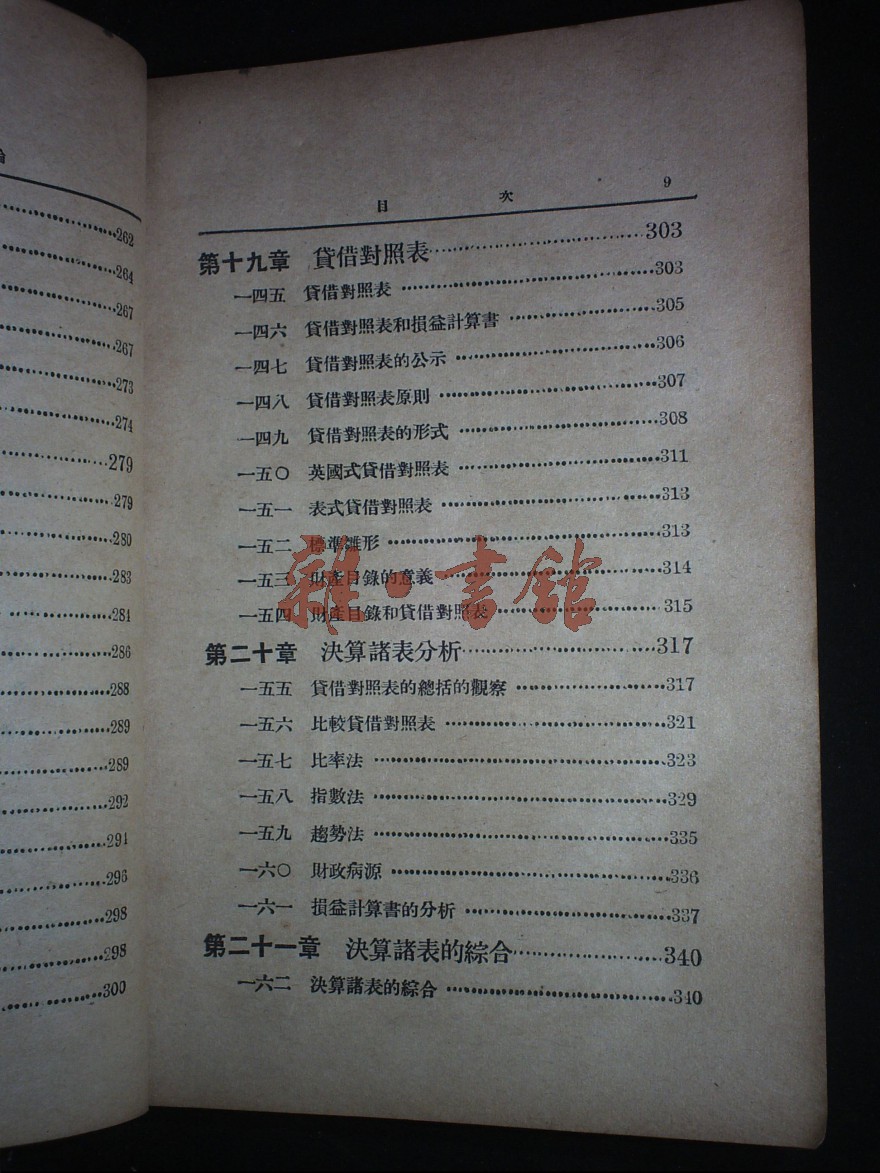 論
262
264
267
267
273
274
279
279
280
283
284
286
288
289
289
292
294
296
298
298
300
目 次 9
第十九章 貸借對照表 303
一四五 貸借對照表 303
一四六 貸借對照表和損益計算書 305
一四七 貸借對照表的公示 306
一四八 貸借對照表原則 307
一四九 貸借對照表的形式 308
一五〇 英國式貸借對照表 311
一五一 表式貸借對照表 313
一五二 標準雛形 313
一五三 財產目錄的意義 314
一五四 財產目錄和貸借對照表 315
第二十章 決算諸表分析 317
一五五 貸借對照表的總括的觀察 317
一五六 比較貸借對照表 321
一五七 比率法 323
一五八 指數法 329
一五九 趨勢法 335
一六〇 財政病源 336
一六一 損益計算書的分析 337
第二十一章 決算諸表的綜合 340
一六二 決算諸表的綜合 340
雜·書館